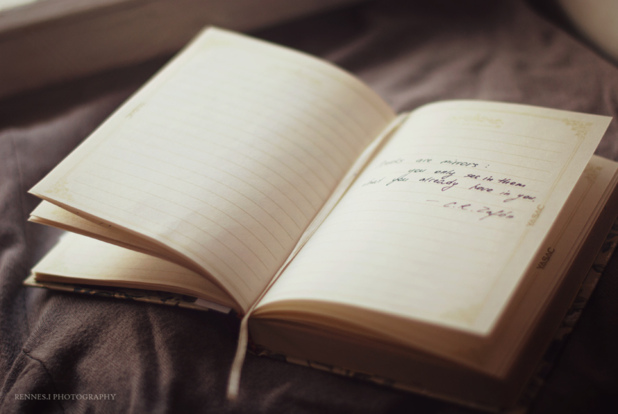 are mirrors:
you only see in them
you already have in you.
YASAC
YASAC
RENNES.I PHOTOGRAPHY